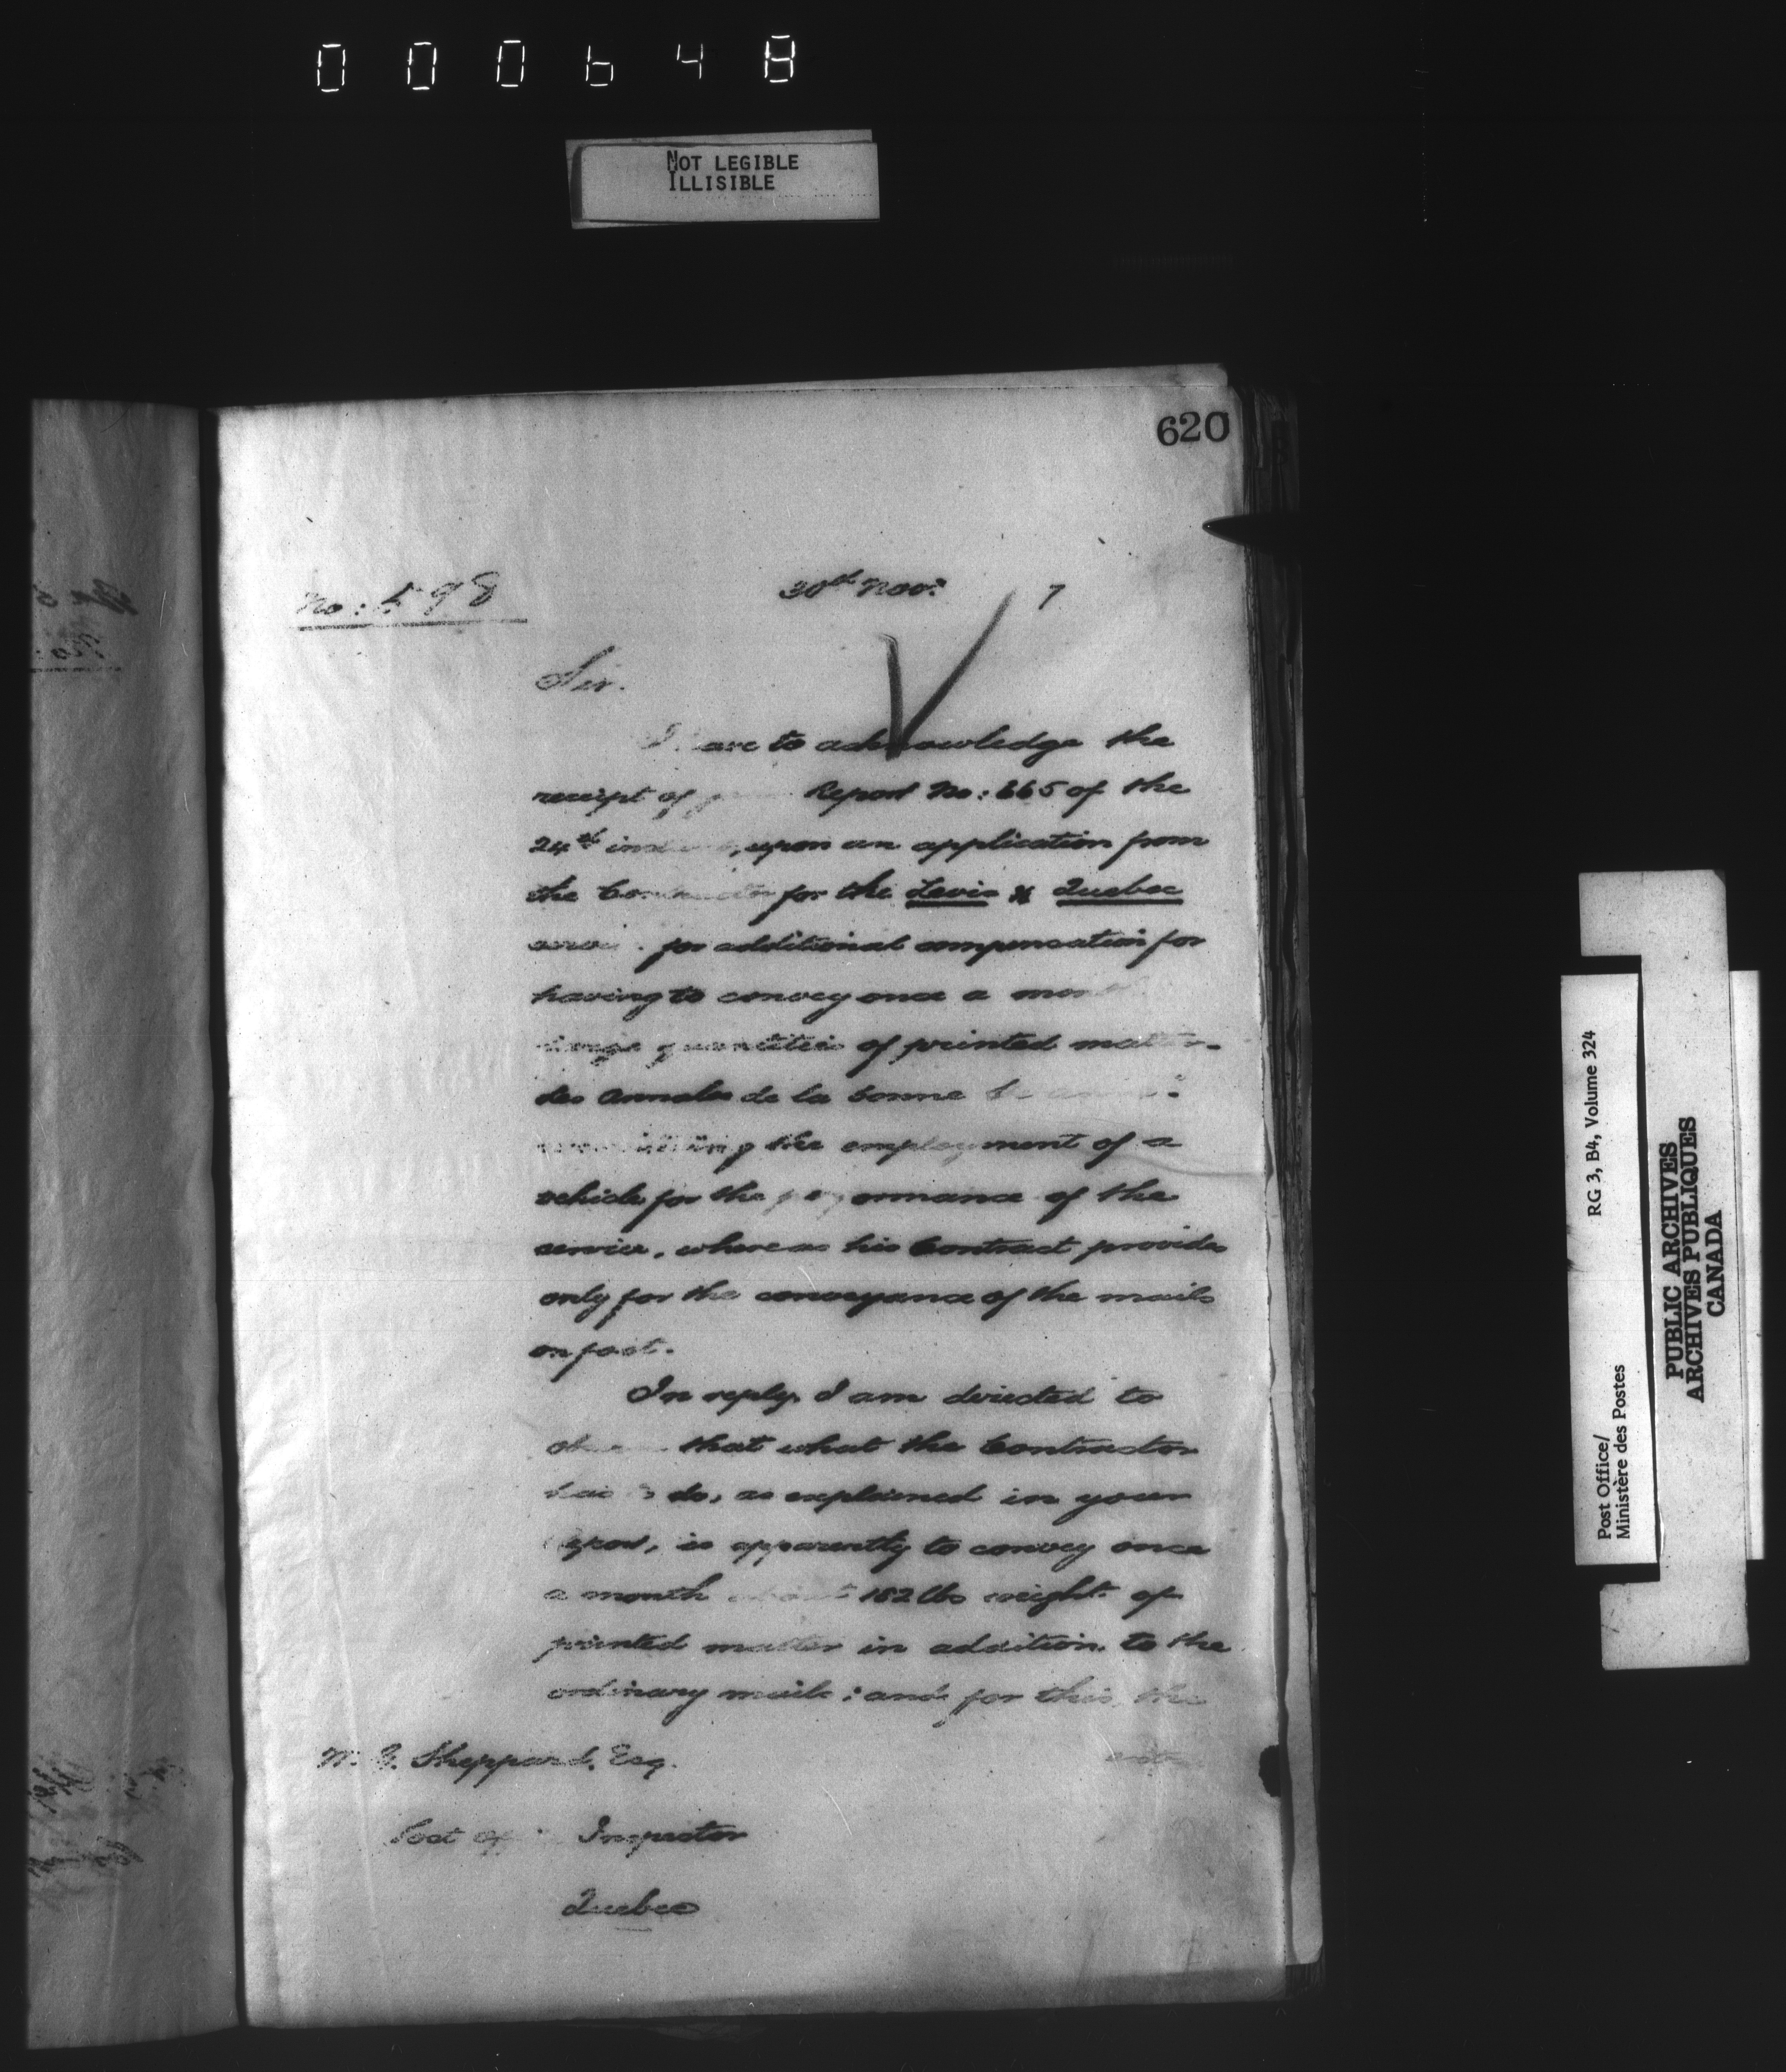 000648
NOT LEGIBLE
ILLISIBLE
620
No: 598
30th Nov: 7
Sir.
I have to acknowledge the
receipt of your Report No: 665 of the
24th instant, upon an application from
the Contractor for the Levis & Quebec
for additional compensation for
having to convey once a month
large quantities of printed matter-
des Annales de la bonne
the employment of a
vehicle for the performance of the
service, whereas his Contract provides
only for the conveyance of the mails
on foot.
In reply I am directed to
observe that what the Contractor
has to do, as explained in your
Report, is apparently to convey once
a month about 182 lbs weight of
printed matter in addition to the
ordinary mails; and for this, the
W. G. Sheppard, Esq.
Post Office Inspector
Quebec
Post Office/
Ministère des Postes
RG 3, B4, Volume 324
PUBLIC ARCHIVES
ARCHIVES PUBLIQUES
CANADA